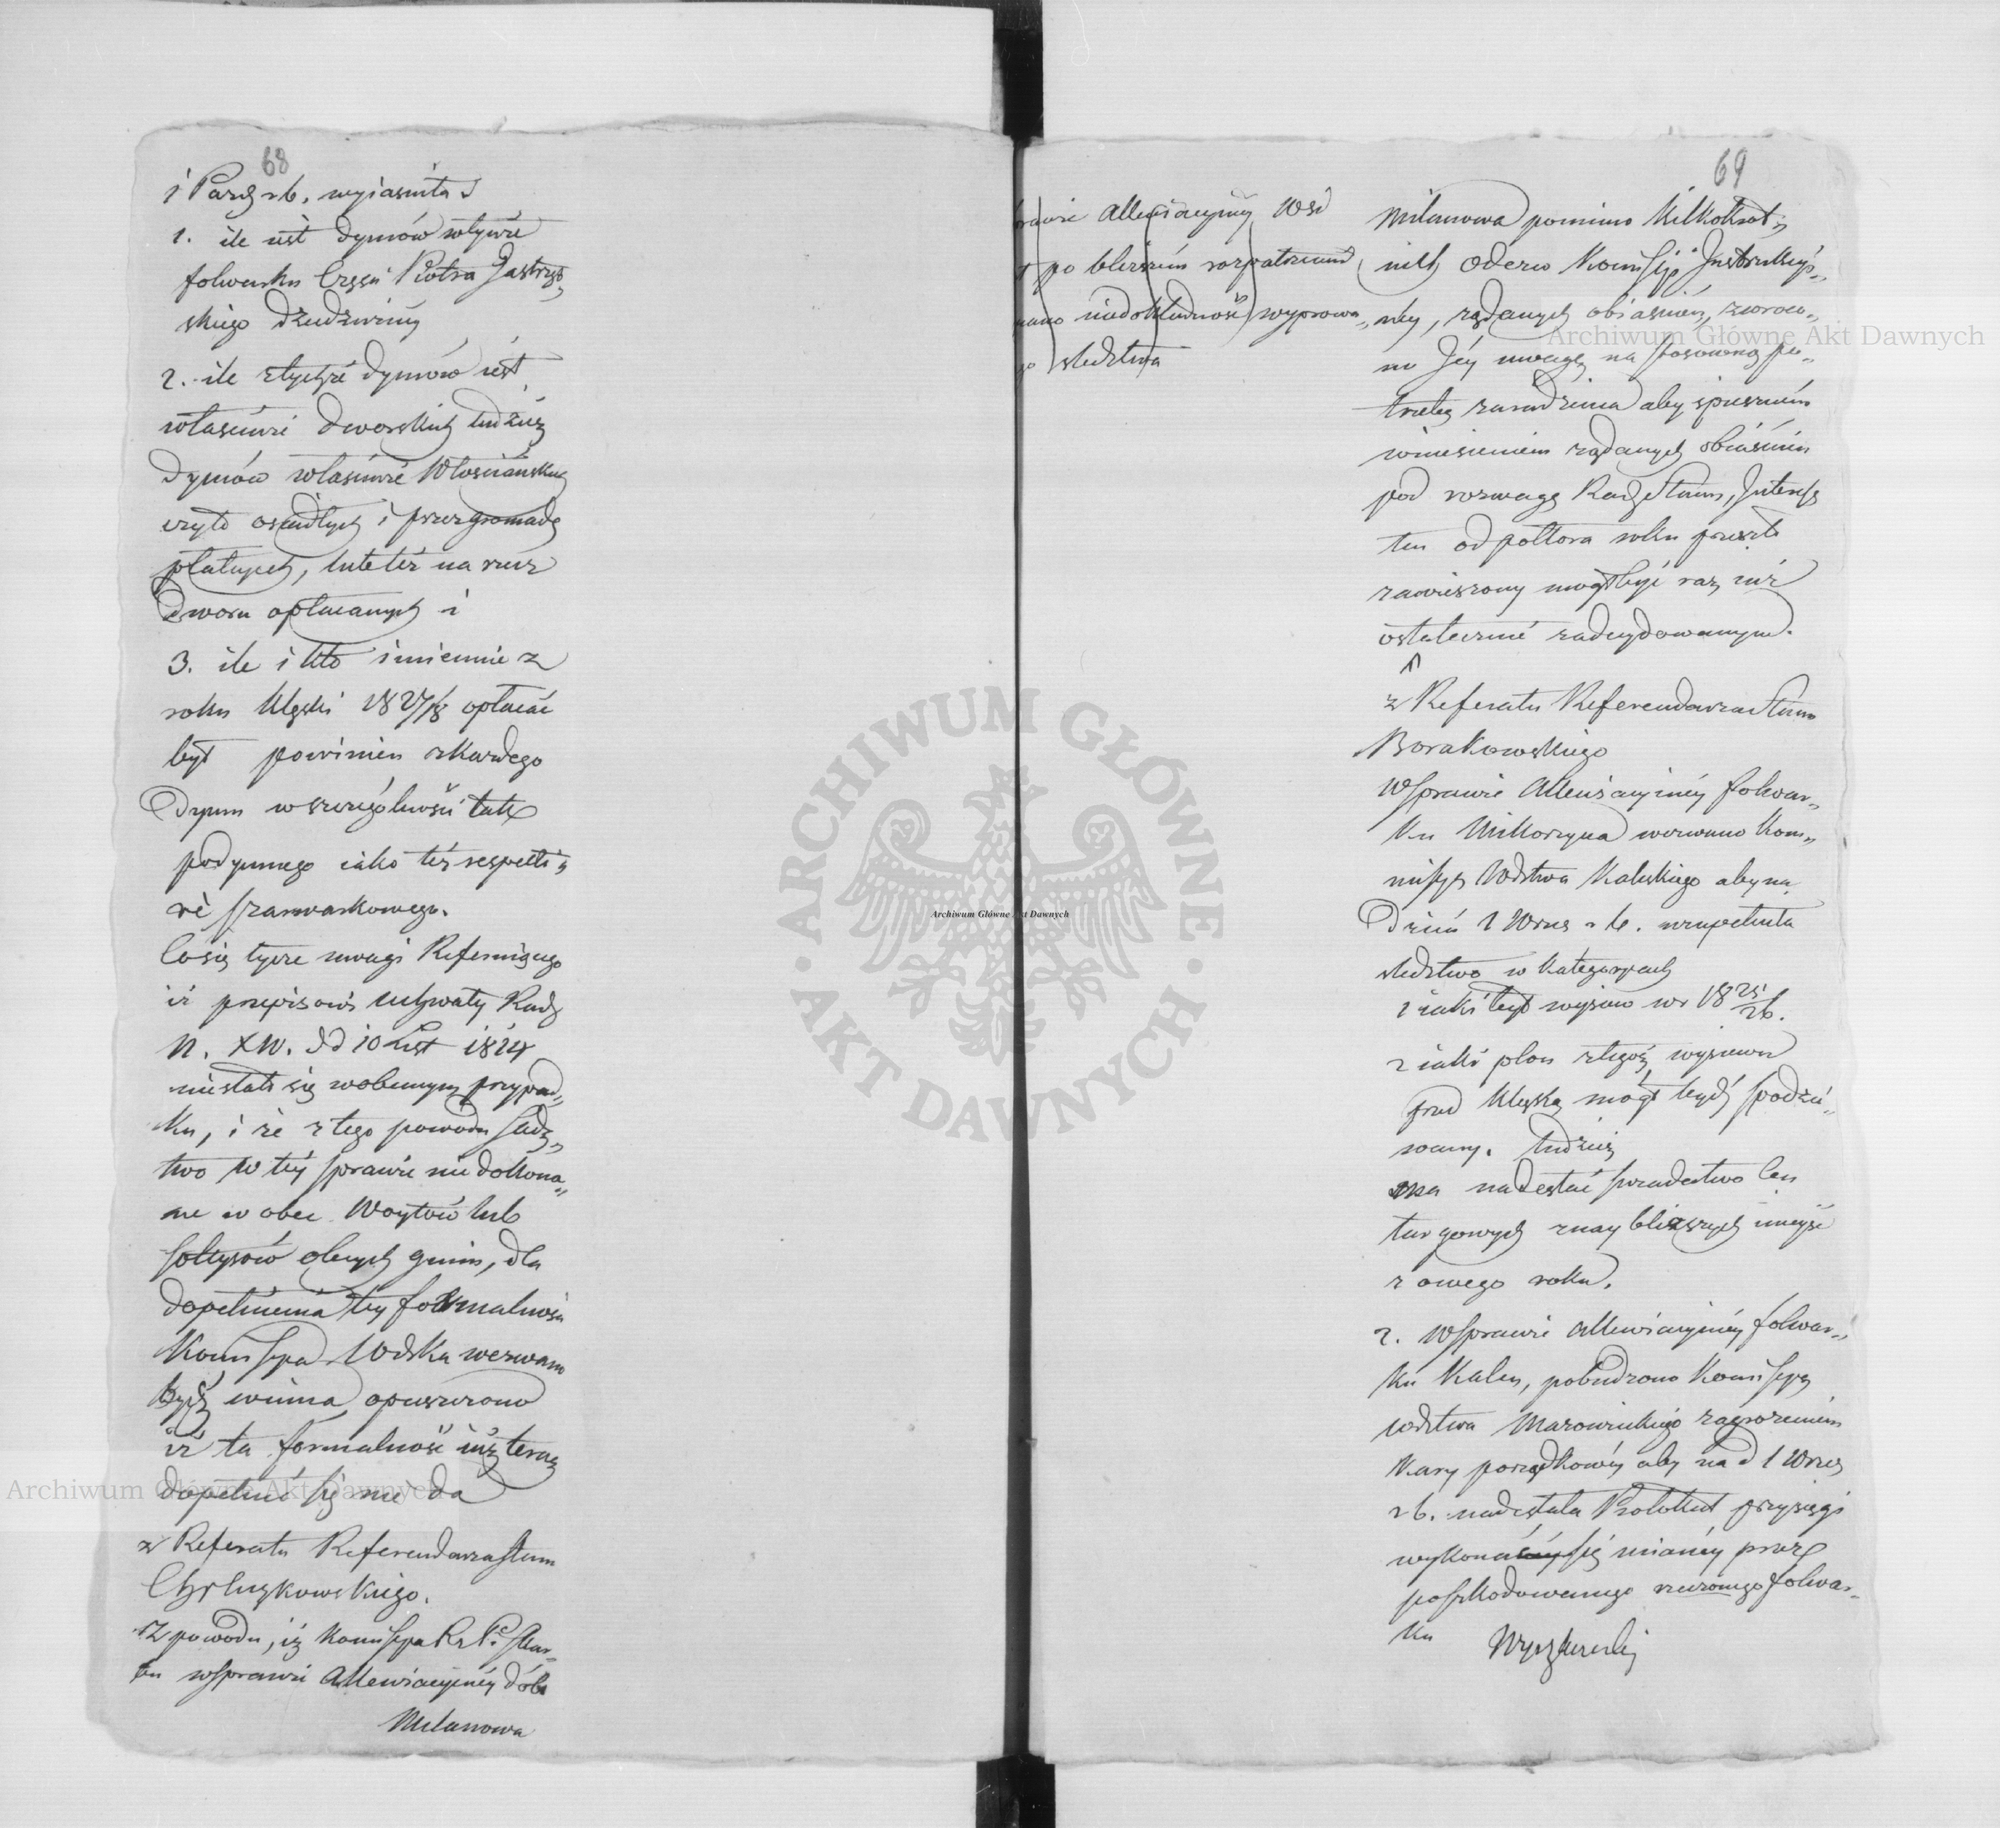 68
i Paźdz rb. wyiaśniła
1. ile iest dymów wtymże
folwarku Części Piotra Jastrzęb„
skiego dziedziczny
2. ile ztychże dymów iest
właściwie dworskich tudzież
dymów właściwie Włościańskich
czyto osiadłych i przez gromadę
płatnych, lubteż na rzecz
dworu opłacanych i
3. ile i kto imiennie z
roku klęski 1827/8 opłacać
był powinien zkażdego
dymu wszczególności tak
podymnego iako też respecti„
ve szarwarkowego.
Cosię tycze uwagi Referuiącego
iż przepisowi uchwały Rady
N. XW. dd 10 List 1814
niestało się wobecnym przypad„
ku, i że z tego powodu śledz„
two w tey sprawie nie dokona„
ne w obec Woytów lub
sołtysów obcych gmin, dla
dopełnienia tey formalności
Komissya Wdzka wezwaną
być winna, opuszczono
iż ta formalność iuż teraz
dopełnić się nie da
z Referatu Referendarza Stanu
Chrluzkowskiego.
Z powodu, iż Komissya R. P. i Skar„
bu wsprawie Allewiacyiney dóbr
Milanowa
69
sprawie Allewiacyiney Wsi
po bliższém rozpatrzeniu
niedokładność wyprowa„
śledztwa
Milanowa pomimo kilkokrot„
nich odezw Komissyi Instrukcyi„
ney, żądanych obiaśnień, zwroco„
no Jéy uwagę na stosowną po„
trzebę zaradzenia aby spiesznem
wniesieniem żądanych obiaśnień
pod rozwagę Rady Stanu, Interess
ten od półtora roku przeszło
zawieszony mógł być raz iuż
ostatecznie zadecydowanym.
z Referatu Referendarza Stanu
Borakowskiego
Wsprawie Allewiacyinéy folwar„
ku Mikorzyna wezwano Kom„
missyę Wdztwa Kaliskiego aby na
Dzień 1 Wrześ r. b. uzupełniła
śledztwo w kategoryach
1 iaki był wysiew w r 1825/26.
2 iaki plon ztegoż wysiewu
przed klęską mógł być spodzie„
wany. Tudzież
ma nadesłać świadectwo cen
targowych znaybliższych mieysc
z owego roku.
2. Wsprawie Allewiacyinéy folwar„
ku Kalen, pobudzono Komissyę
Wdztwa Mazowieckiego zagrożeniem
kary porządkowéy aby na d 1 Wrześ
rb. nadesłała Protokuł przysięgi
wykonać się mianéy przez
poszkodowanego rzeczonego folwar„
ku
Archiwum Główne Akt Dawnych
Archiwum Główne Akt Dawnych
Archiwum Główne Akt Dawnych
ARCHIWUM GŁÓWNE
AKT DAWNYCH